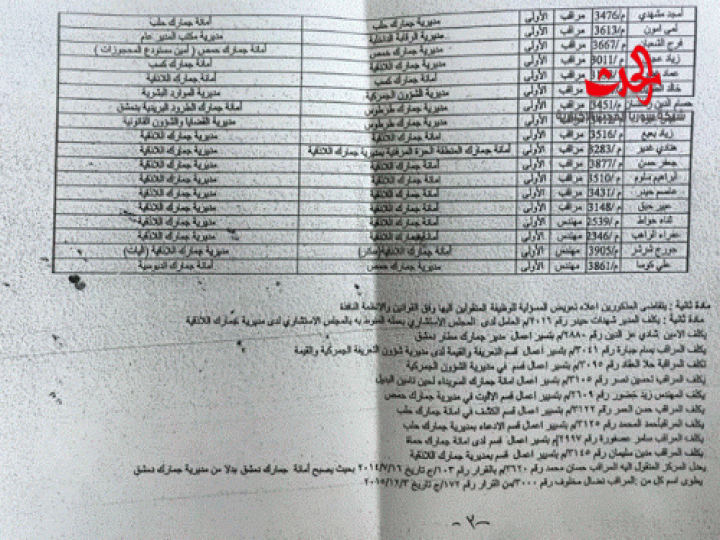 أمجد مشهدي م/3476 مراقب الأولى مديرية جمارك حلب أمانة جمارك حلب
لمى أمون م/3613 مراقب الأولى مديرية الرقابة الداخلية مديرية مكتب المدير عام
فرج الشعبان م/3667 مراقب الأولى مديرية جمارك حمص أمانة جمارك حمص ( أمين مستودع المحجوزات )
زياد م/3011 مراقب الأولى مديرية جمارك اللاذقية أمانة جمارك كسب
عماد مراقب الأولى أمانة جمارك كسب أمانة جمارك اللاذقية
خالد مراقب الأولى مديرية الشؤون الجمركية مديرية الموارد البشرية
حسام الدين م/3451 مراقب الأولى مديرية جمارك طرطوس أمانة جمارك الطرود البريدية بدمشق
مراقب الأولى مديرية جمارك طرطوس مديرية القضايا والشؤون القانونية
زياد بعيع م/3516 مراقب الأولى أمانة جمارك اللاذقية مديرية جمارك اللاذقية
هنادي غدير م/3283 مراقب الأولى أمانة جمارك المنطقة الحرة المرفئية بمديرية جمارك اللاذقية مديرية جمارك اللاذقية
جعفر حسن م/3877 مراقب الأولى أمانة جمارك اللاذقية مديرية جمارك اللاذقية
ابراهيم سلوم م/3510 مراقب الأولى أمانة جمارك اللاذقية مديرية جمارك اللاذقية
عاصم حيدر م/3431 مراقب الأولى أمانة جمارك اللاذقية مديرية جمارك اللاذقية
عبير حبق م/3148 مراقب الأولى أمانة جمارك اللاذقية مديرية جمارك اللاذقية
م/2539 مهندس الأولى أمانة جمارك اللاذقية مديرية جمارك اللاذقية
عفراء الراهب م/2346 مهندس الأولى أمانة جمارك اللاذقية مديرية جمارك اللاذقية
جورج شرشر م/3905 مهندس الأولى أمانة جمارك اللاذقية (صادر) مديرية جمارك اللاذقية (آليات)
علي كوسا م/3861 مهندس الأولى مديرية جمارك حمص أمانة جمارك الدبوسية
الحدث
مادة ثانية : يتقاضى المذكورين اعلاه تعويض المسؤلية للوظيفة المنقولين اليها وفق القوانين والانظمة النافذة
مادة ثانية : يكلف المدير شهدات حيدر رقم ٢٠٢٦/م العامل لدى المجلس الاستشاري بعمله المنوط به بالمجلس الاستشاري لدى مديرية جمارك اللاذقية
يكلف الامين شادي عز الدين رقم ٢٨٨٠/م بتسير اعمال مدير جمارك مطار دمشق
يكلف المراقب بسام جبارة رقم ٣٠٤١/م بتسير أعمال قسم التعريفة والقيمة لدى مديرية شؤون التعريفة الجمركية والقيمة
تكلف المراقبة حلا العقاد رقم ٣٠٩٥/م بتسير اعمال قسم في مديرية الشؤون الجمركية
يكلف المراقب تحسين نصر رقم ٣١٠٥/م بتسيير اعمال امانة جمارك السويداء لحين تامين البديل
يكلف المهندس زيد خضور رقم ٢٦٠٩/م بتسيير اعمال قسم الاليات في مديرية جمارك حمص
يكلف المراقب حسن العمر رقم ٣١٢٢/م بتسير اعمال قسم الكشف في امانة جمارك حلب
يكلف المراقب أحمد المحمد رقم ٣١٢٥/م بتسير اعمال قسم الادعاء بمديرية جمارك حلب
يكلف المراقب سامر عصفورة رقم ٢٩٩٧/م بتسير اعمال قسم لدى امانة جمارك حماة
يكلف المراقب مدين سليمان رقم ٣١٤٥/م بتسير اعمال قسم بمديرية جمارك اللاذقية
يعدل المركز المنقول اليه المراقب حسان محمد رقم ٣٦٢٠/م بالقرار رقم ١٠٣/ج تاريخ ٢٠١٤/٧/١٦ بحيث يصبح أمانة جمارك دمشق بدلا من مديرية جمارك دمشق
يطوى اسم كل من : المراقب نضال مخلوف رقم ٣٠٠٠/م من القرار رقم ١٧٢/ج تاريخ ٢٠١٥/١٢/٣.
-٢-